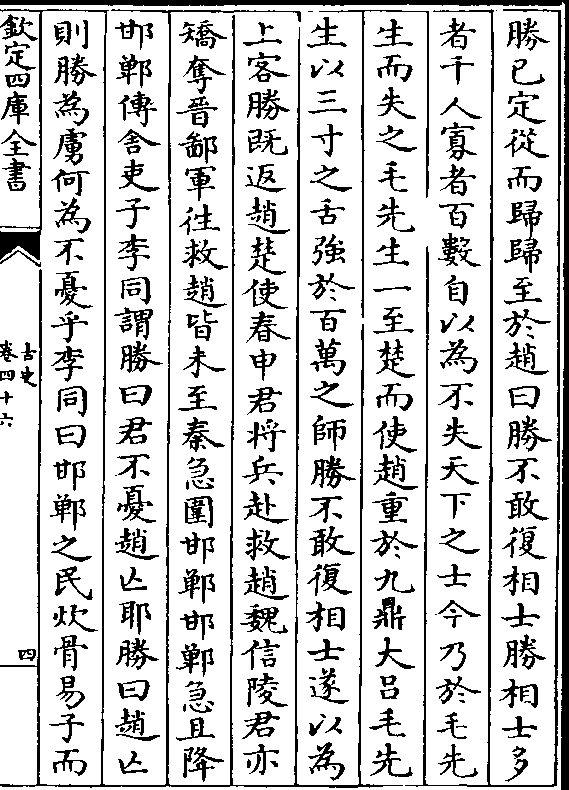 勝已定從而歸歸至於趙曰勝不敢復相士勝相士多
者千人寡者百數自以為不失天下之士今乃於毛先
生而失之毛先生一至楚而使趙重於九鼎大吕毛先
生以三寸之舌強於百萬之師勝不敢復相士遂以為
上客勝既返趙楚使春申君将兵赴救趙魏信陵君亦
矯奪晉鄙軍往救趙皆未至秦急圍邯鄲邯鄲急且降
邯鄲傳舍吏子李同謂勝曰君不憂趙亡耶勝曰趙亡
則勝為虜何為不憂乎李同曰邯鄲之民炊骨易子而
欽定四庫全書
古史
卷四十六
四